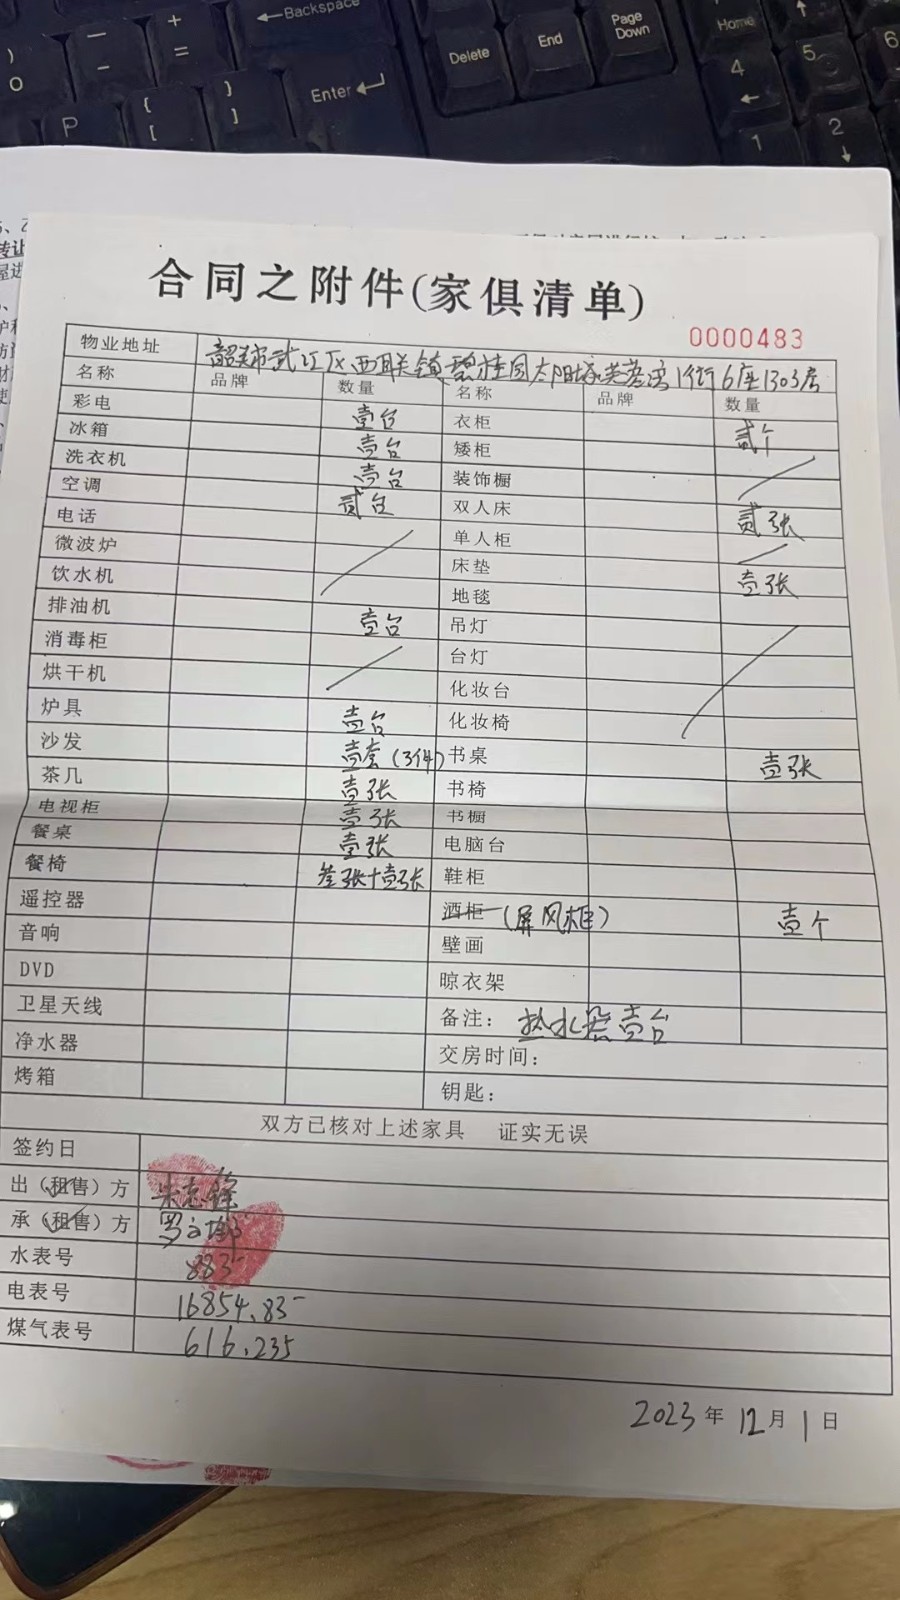 合同之附件(家俱清单)
0000483
物业地址 韶关市武江区西联镇碧桂园太阳城芙蓉湾1街6座1303房
名称 品牌 数量 名称 品牌 数量
彩电 壹台 衣柜 贰个
冰箱 壹台 矮柜
洗衣机 壹台 装饰橱
空调 贰台 双人床 贰张
电话 单人柜
微波炉 床垫 壹张
饮水机 地毯
排油机 壹台 吊灯
消毒柜 台灯
烘干机 化妆台
炉具 壹台 化妆椅
沙发 壹套(3件) 书桌 壹张
茶几 壹张 书椅
电视柜 壹张 书橱
餐桌 壹张 电脑台
餐椅 张+壹张 鞋柜
遥控器 酒柜(屏风柜) 壹个
音响 壁画
DVD 晾衣架
卫星天线 备注: 热水器壹台
净水器 交房时间:
烤箱 钥匙:
双方已核对上述家具 证实无误
签约日
出(租售)方 朱志锋
承(租售)方 罗
水表号 883
电表号 16854.83
煤气表号 616.235
2023年12月1日
Backspace
Delete
End
Page Down
Home
Enter
P